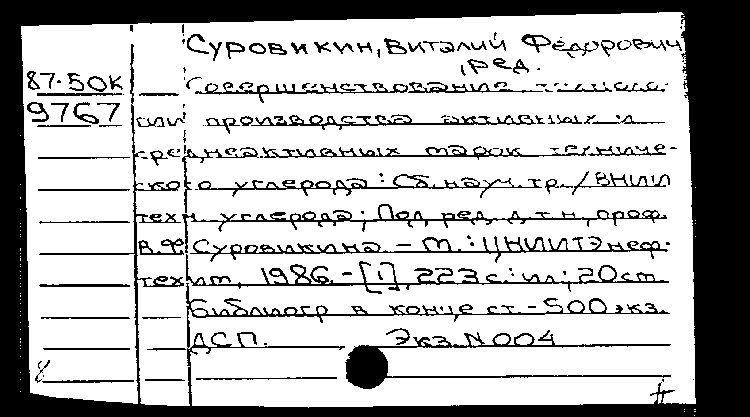 Суровикин, Виталий Федорович
, ред.
87-50к Совершенствование техноло-
9767 гии производства активных и
среднеактивных марок техниче-
ского углерода : Сб. науч. тр. / ВНИИ
техн. углерода; Под ред. д.т.н., проф.
В.Ф. Суровикина. - М. : ЦНИИТЭнеф-
техим, 1986. - [1], 223 с. : ил; 20 см
Библиогр в конце ст. - 500 экз.
ДСП. Экз. N 004
8